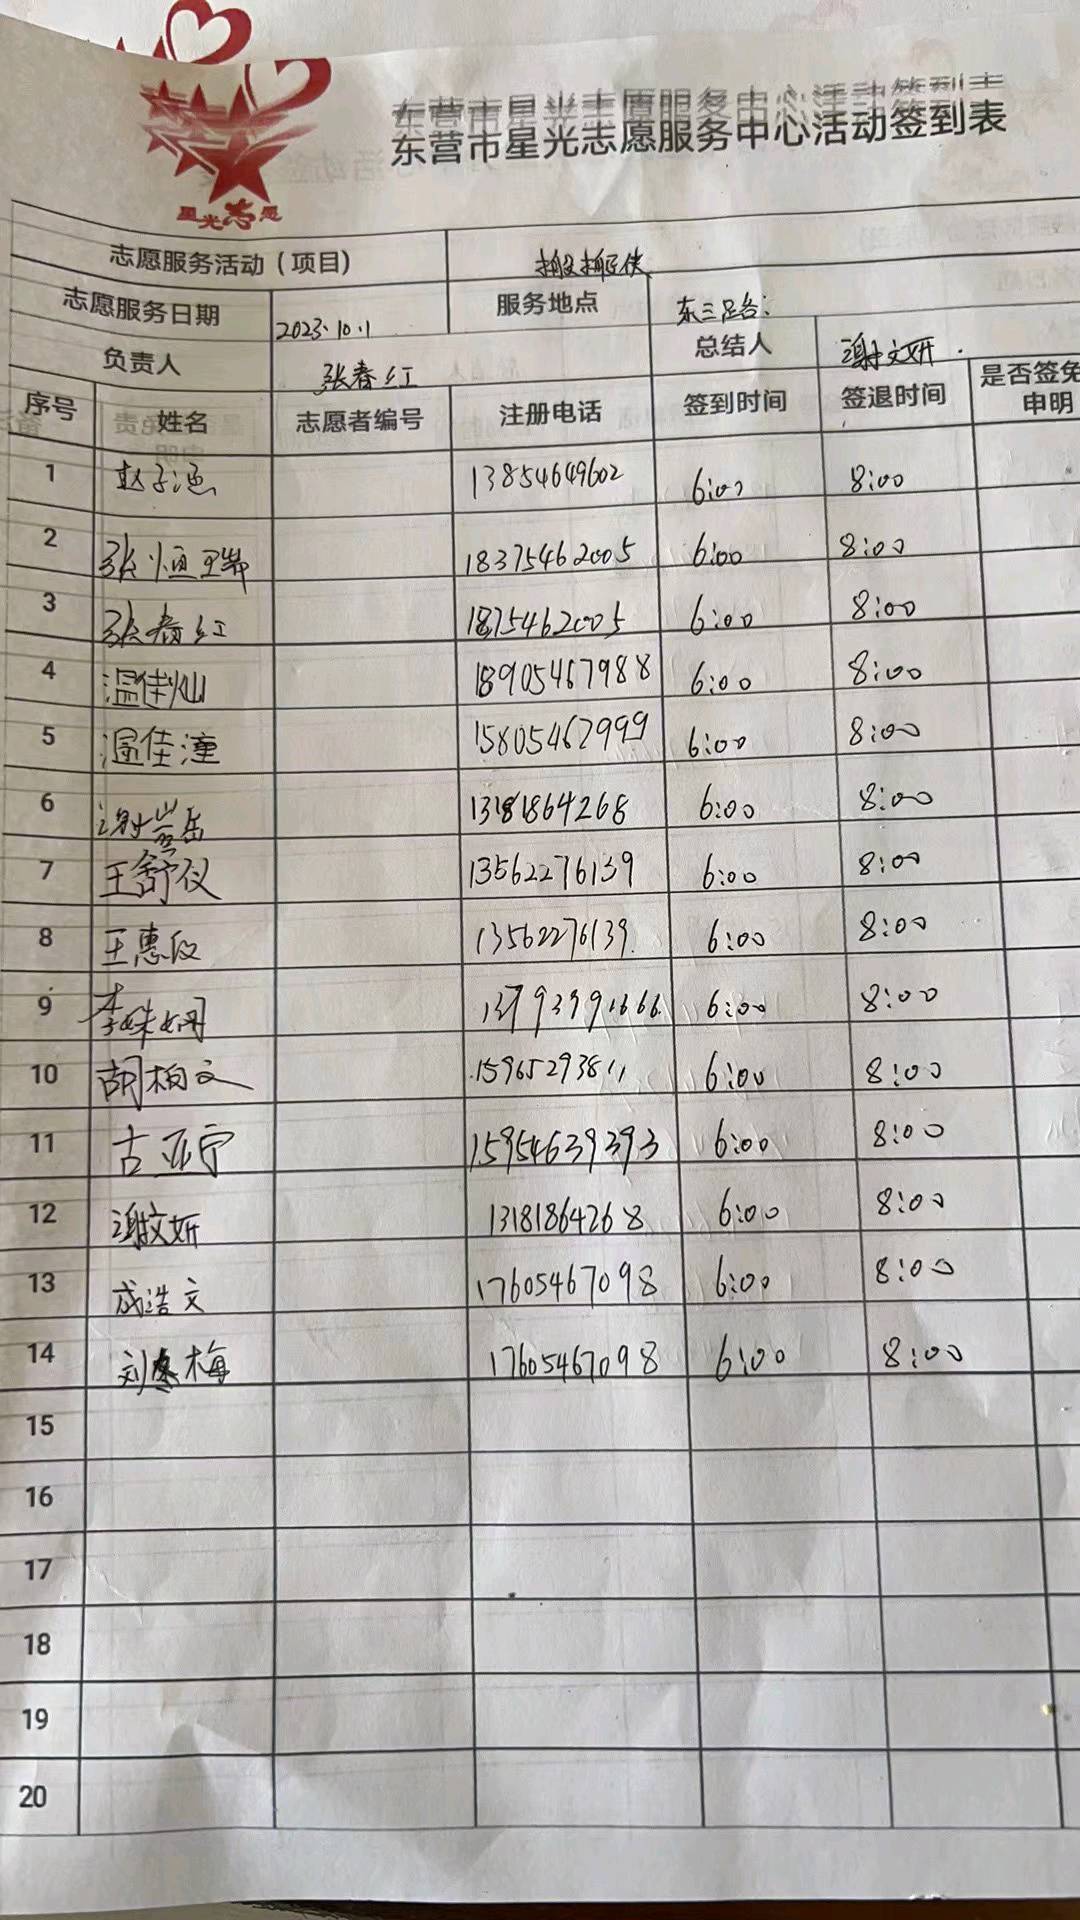 东营市星光志愿服务中心活动签到表
东营市星光志愿服务中心活动签到表
星光志愿
志愿服务活动（项目)
志愿服务日期 2023.10.1 服务地点 东三路:
负责人 张春红 总结人 谢文妍.
序号 姓名 志愿者编号 注册电话 签到时间 签退时间 是否签免
申明
1 赵子涵 13854649602 6:00 8:00
2 张恒瑞 18375462005 6:00 8:00
3 张春红 1875462005 6:00 8:00
4 温佳灿 18905467988 6:00 8:00
5 温佳潼 15805462999 6:00 8:00
6 13181864268 6:00 8:00
7 王舒仪 13562276139 6:00 8:00
8 王惠仪 13562276139 6:00 8:00
9 李姝娴 6:00 8:00
10 胡柏文 15965293811 6:00 8:00
11 古亚宁 15954639393 6:00 8:00
12 谢文妍 13181864268 6:00 8:00
13 成浩文 17605467098 6:00 8:00
14 刘冬梅 17605467098 6:00 8:00
15
16
17
18
19
20